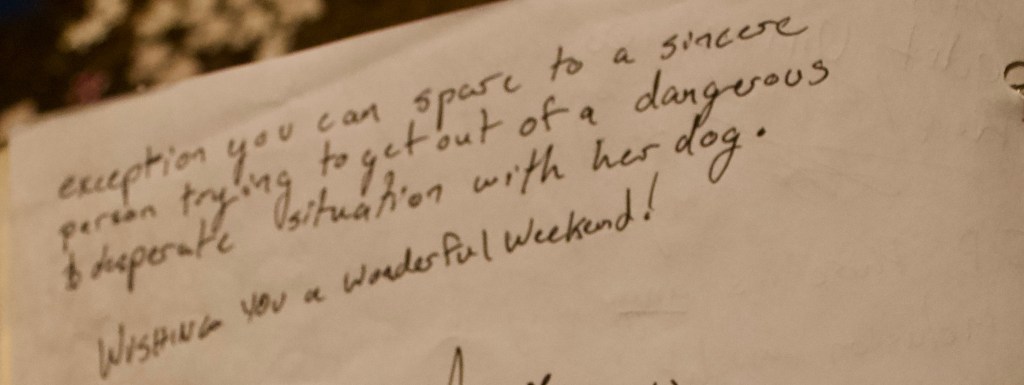 exception you can spare to a sincere
person trying to get out of a dangerous
& desperate situation with her dog.
Wishing you a wonderful weekend!